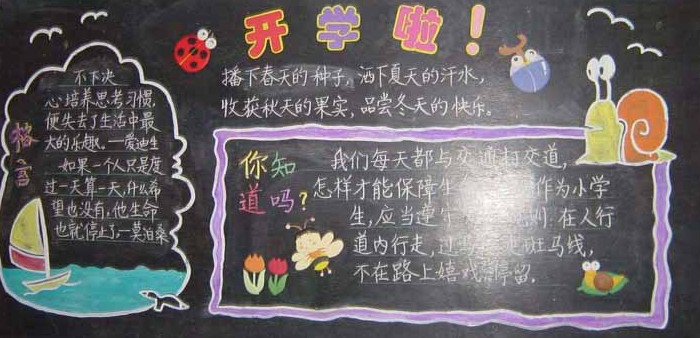 开学啦！
播下春天的种子，洒下夏天的汗水，
收获秋天的果实，品尝冬天的快乐。
格言
不下决
心培养思考习惯，
便失去了生活中最
大的乐趣。—爱迪生
如果一个人只是度
过一天算一天，什么希
望也没有，他生命
也就停止了—莫泊桑
你知
道吗？
我们每天都与交通打交道，
怎样才能保障生 作为小学
生，应当遵 在人行
道内行走，过 斑马线，
不在路上嬉戏 停留。